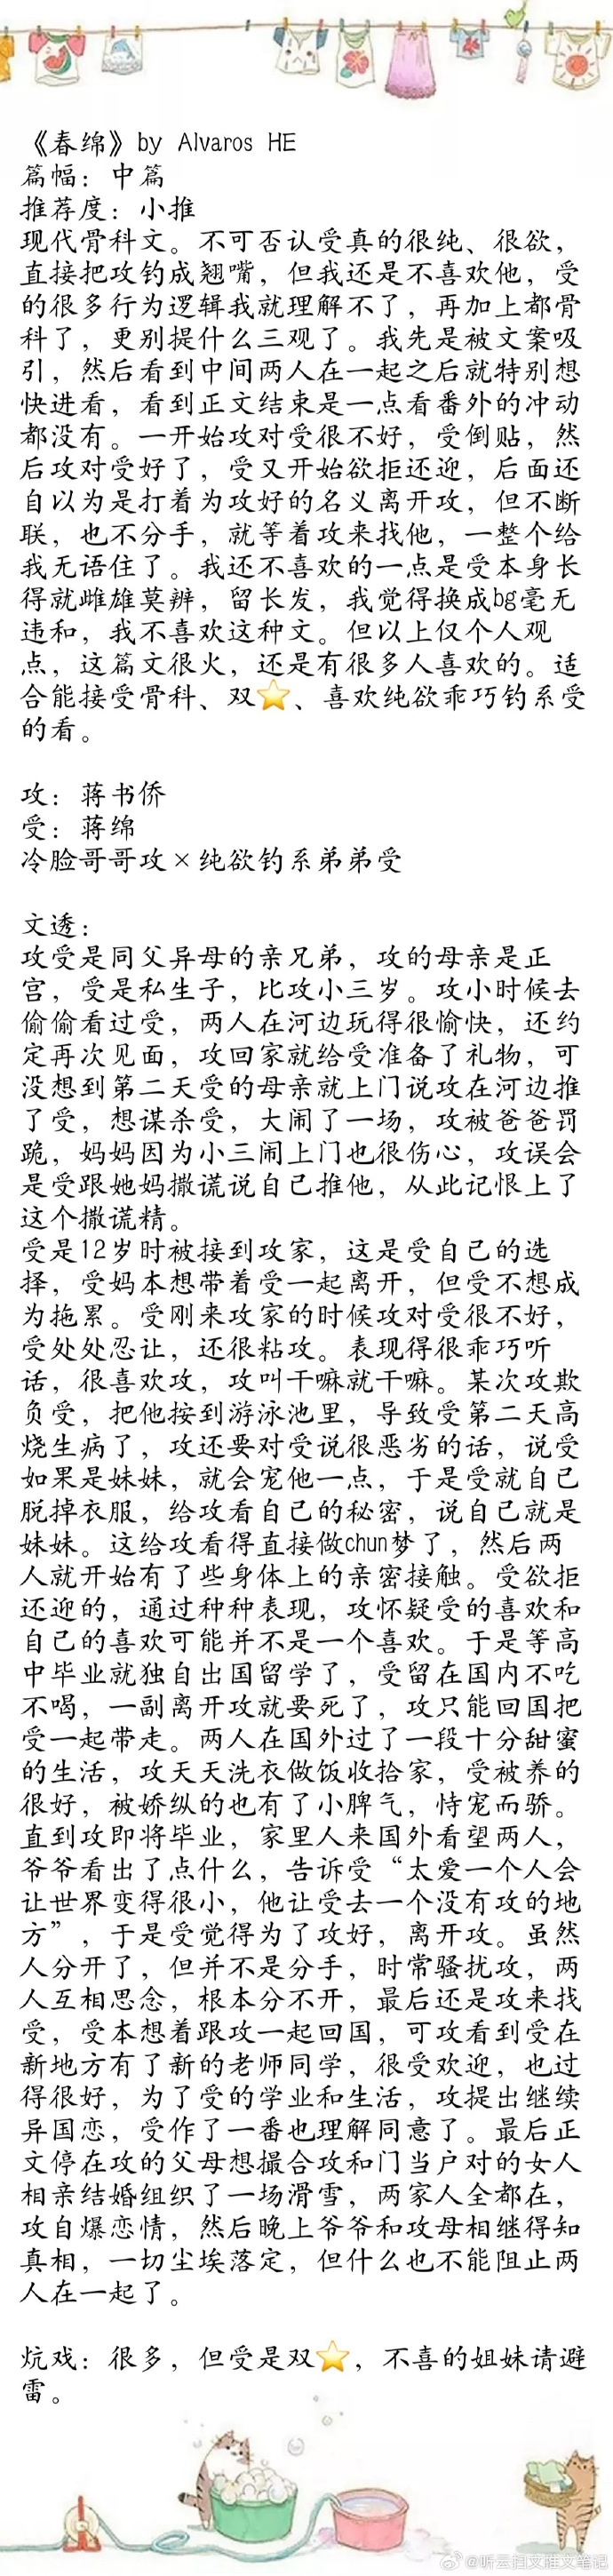 《春绵》by Alvaros HE
篇幅：中篇
推荐度：小推
现代骨科文。不可否认受真的很纯、很欲，
直接把攻钓成翘嘴，但我还是不喜欢他，受
的很多行为逻辑我就理解不了，再加上都骨
科了，更别提什么三观了。我先是被文案吸
引，然后看到中间两人在一起之后就特别想
快进看，看到正文结束是一点看番外的冲动
都没有。一开始攻对受很不好，受倒贴，然
后攻对受好了，受又开始欲拒还迎，后面还
自以为是打着为攻好的名义离开攻，但不断
联，也不分手，就等着攻来找他，一整个给
我无语住了。我还不喜欢的一点是受本身长
得就雌雄莫辨，留长发，我觉得换成bg毫无
违和，我不喜欢这种文。但以上仅个人观
点，这篇文很火，还是有很多人喜欢的。适
合能接受骨科、双⭐、喜欢纯欲乖巧钓系受
的看。
攻：蒋书侨
受：蒋绵
冷脸哥哥攻×纯欲钓系弟弟受
文透：
攻受是同父异母的亲兄弟，攻的母亲是正
宫，受是私生子，比攻小三岁。攻小时候去
偷偷看过受，两人在河边玩得很愉快，还约
定再次见面，攻回家就给受准备了礼物，可
没想到第二天受的母亲就上门说攻在河边推
了受，想谋杀受，大闹了一场，攻被爸爸罚
跪，妈妈因为小三闹上门也很伤心，攻误会
是受跟她妈撒谎说自己推他，从此记恨上了
这个撒谎精。
受是12岁时被接到攻家，这是受自己的选
择，受妈本想带着受一起离开，但受不想成
为拖累。受刚来攻家的时候攻对受很不好，
受处处忍让，还很粘攻。表现得很乖巧听
话，很喜欢攻，攻叫干嘛就干嘛。某次攻欺
负受，把他按到游泳池里，导致受第二天高
烧生病了，攻还要对受说很恶劣的话，说受
如果是妹妹，就会宠他一点，于是受就自己
脱掉衣服，给攻看自己的秘密，说自己就是
妹妹。这给攻看得直接做chun梦了，然后两
人就开始有了些身体上的亲密接触。受欲拒
还迎的，通过种种表现，攻怀疑受的喜欢和
自己的喜欢可能并不是一个喜欢。于是等高
中毕业就独自出国留学了，受留在国内不吃
不喝，一副离开攻就要死了，攻只能回国把
受一起带走。两人在国外过了一段十分甜蜜
的生活，攻天天洗衣做饭收拾家，受被养的
很好，被娇纵的也有了小脾气，恃宠而骄。
直到攻即将毕业，家里人来国外看望两人，
爷爷看出了点什么，告诉受“太爱一个人会
让世界变得很小，他让受去一个没有攻的地
方”，于是受觉得为了攻好，离开攻。虽然
人分开了，但并不是分手，时常骚扰攻，两
人互相思念，根本分不开，最后还是攻来找
受，受本想着跟攻一起回国，可攻看到受在
新地方有了新的老师同学，很受欢迎，也过
得很好，为了受的学业和生活，攻提出继续
异国恋，受作了一番也理解同意了。最后正
文停在攻的父母想撮合攻和门当户对的女人
相亲结婚组织了一场滑雪，两家人全都在，
攻自爆恋情，然后晚上爷爷和攻母相继得知
真相，一切尘埃落定，但什么也不能阻止两
人在一起了。
炕戏：很多，但受是双⭐，不喜的姐妹请避
雷。